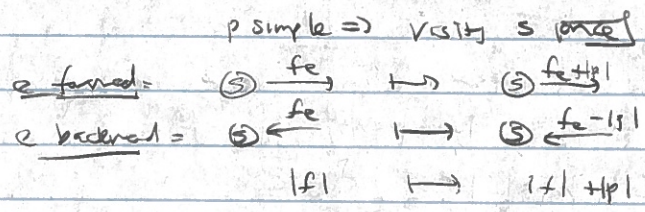 p simple => visits s once
e forward = (s) fe → ↦ (s) fe+|p| →
e backward = (s) fe ← ↦ (s) fe-|p| ←
|f| ↦ |f| + |p|